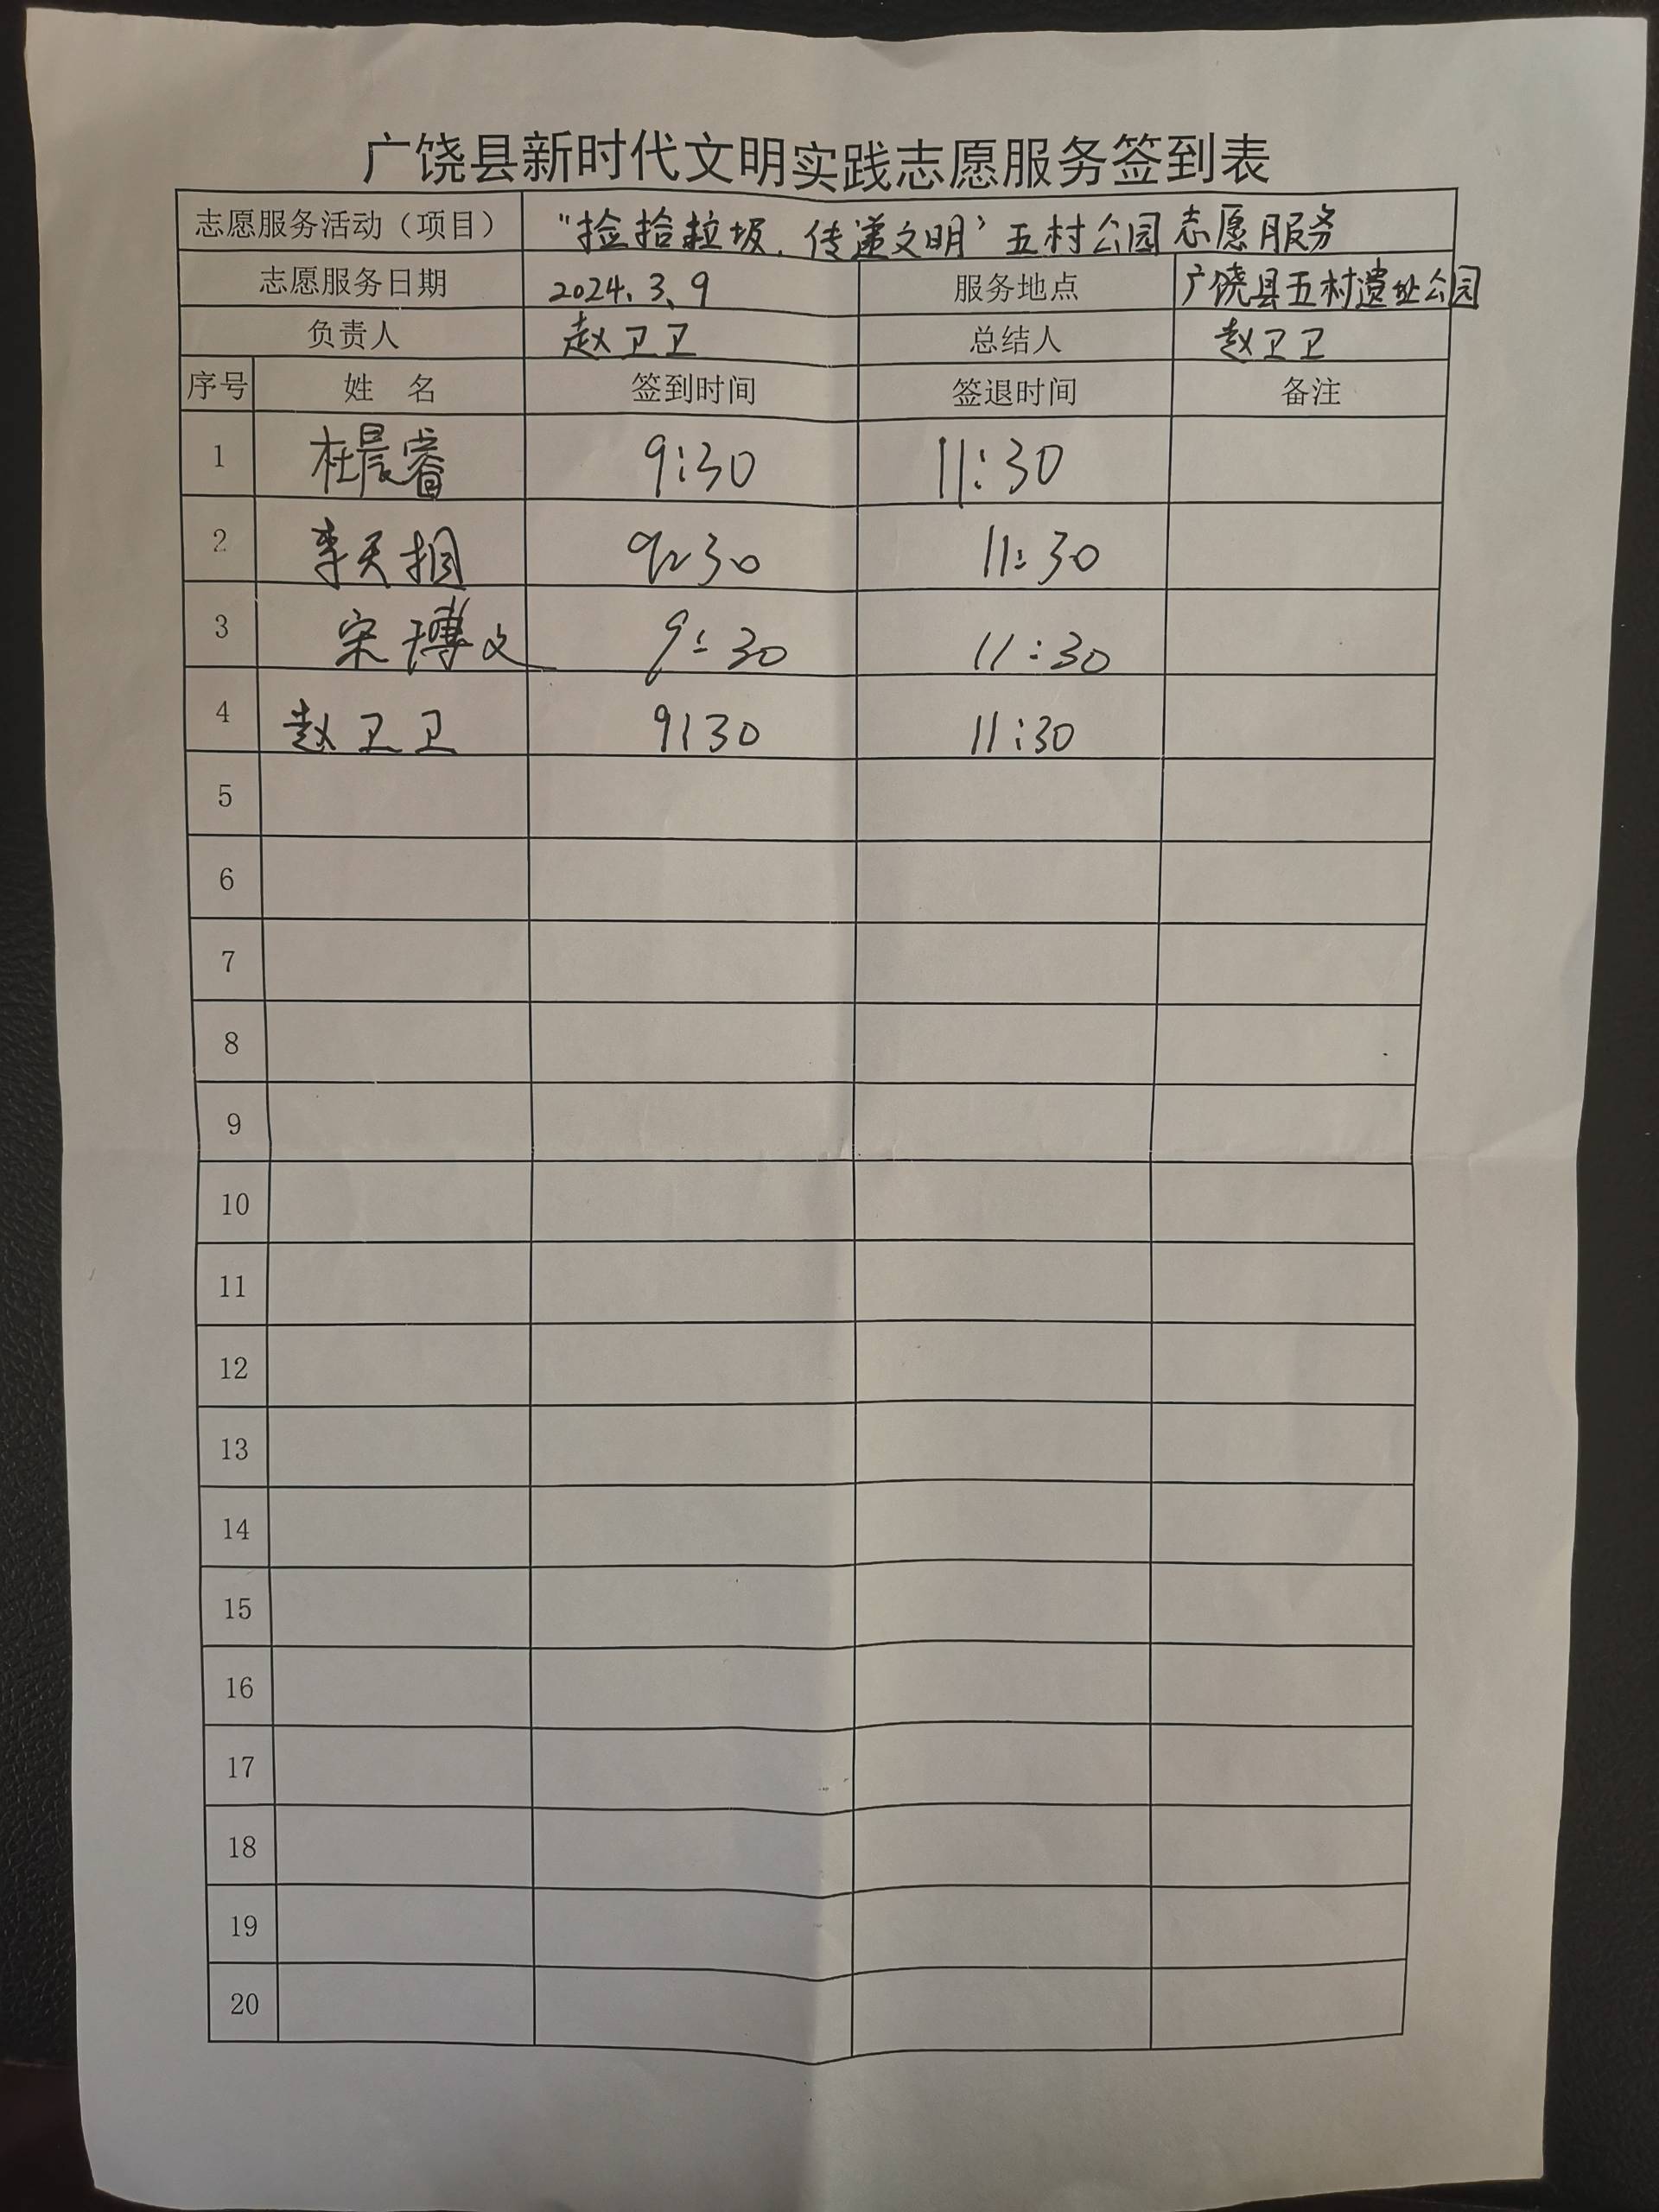 广饶县新时代文明实践志愿服务签到表
志愿服务活动（项目） “捡拾垃圾，传递文明”五村公园志愿服务
志愿服务日期 2024.3.9 服务地点 广饶县五村遗址公园
负责人 赵卫卫 总结人 赵卫卫
序号 姓 名 签到时间 签退时间 备注
1 杜晨睿 9:30 11:30
2 李天 9:30 11:30
3 宋博文 9:30 11:30
4 赵卫卫 9:30 11:30
5
6
7
8
9
10
11
12
13
14
15
16
17
18
19
20